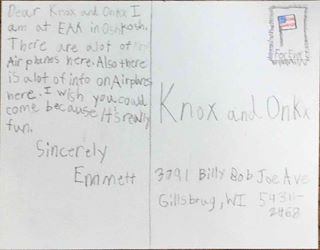 Dear Knox and Onkx I
am at EAA in Oshkosh.
There are alot of
Airplanes here. Also there
is alot of info on Airplanes
here. I wish you could
come because it's really
fun.
Sincerely
Emmett
For Ever
Knox and Onkx
3791 Billy Bob Joe Ave
Gillsbrug, WI 5431-
2468